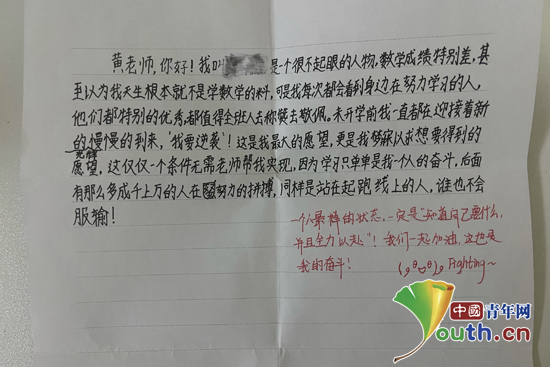 黄老师,你好!我叫 是一个很不起眼的人物,数学成绩特别差,甚
至以为我天生根本就不是学数学的料,可是我每次都会看到身边在努力学习的人,
他们都特别的优秀,都值得全班人去称赞去敬佩。未开学前我一直都在迎接着新
的慢慢的到来,“我要逆袭”!这是我最大的愿望,更是我寐以求想要得到的
光辉
愿望,这仅仅一个条件无需老师帮我实现,因为学习只单单是我一个人的奋斗,后面
有那么多成千上万的人在努力的拼搏,同样是站在起跑线上的人,谁也不会
服输!
一个人最棒的状态,一定是“知道自己要什么,
并且全力以赴”!我们一起加油,这也是
我的奋斗!
Fighting~
中國青年网
Youth.cn